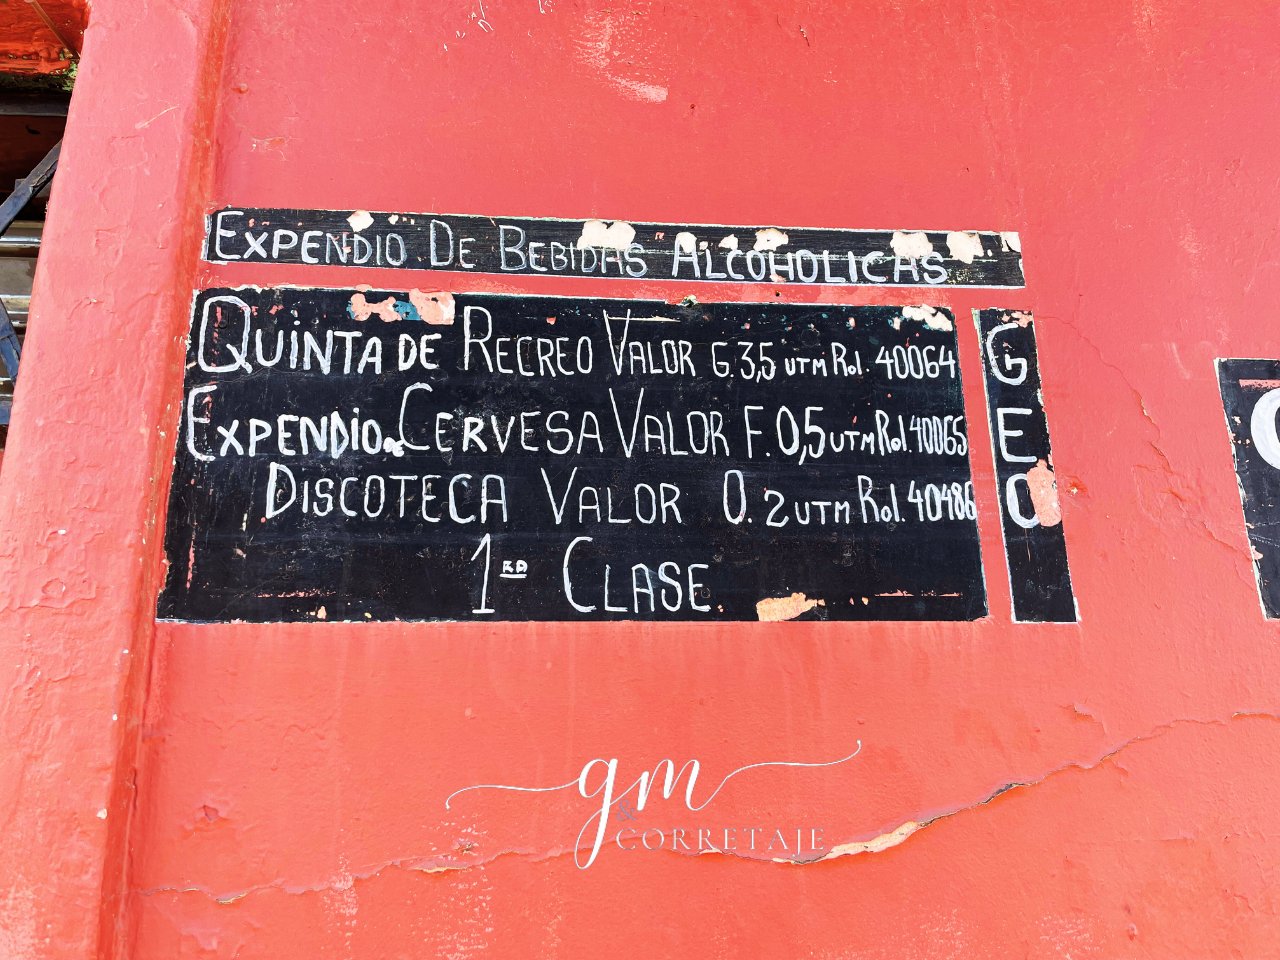 EXPENDIO DE BEBIDAS ALCOHOLICAS
QUINTA DE RECREO VALOR G. 3,5 UTM Rol. 40064
EXPENDIO CERVESA VALOR F. 0,5 UTM Rol 40065
DISCOTECA VALOR O. 2 UTM Rol. 40486
1RA CLASE
G
E
O
gm
& CORRETAJE